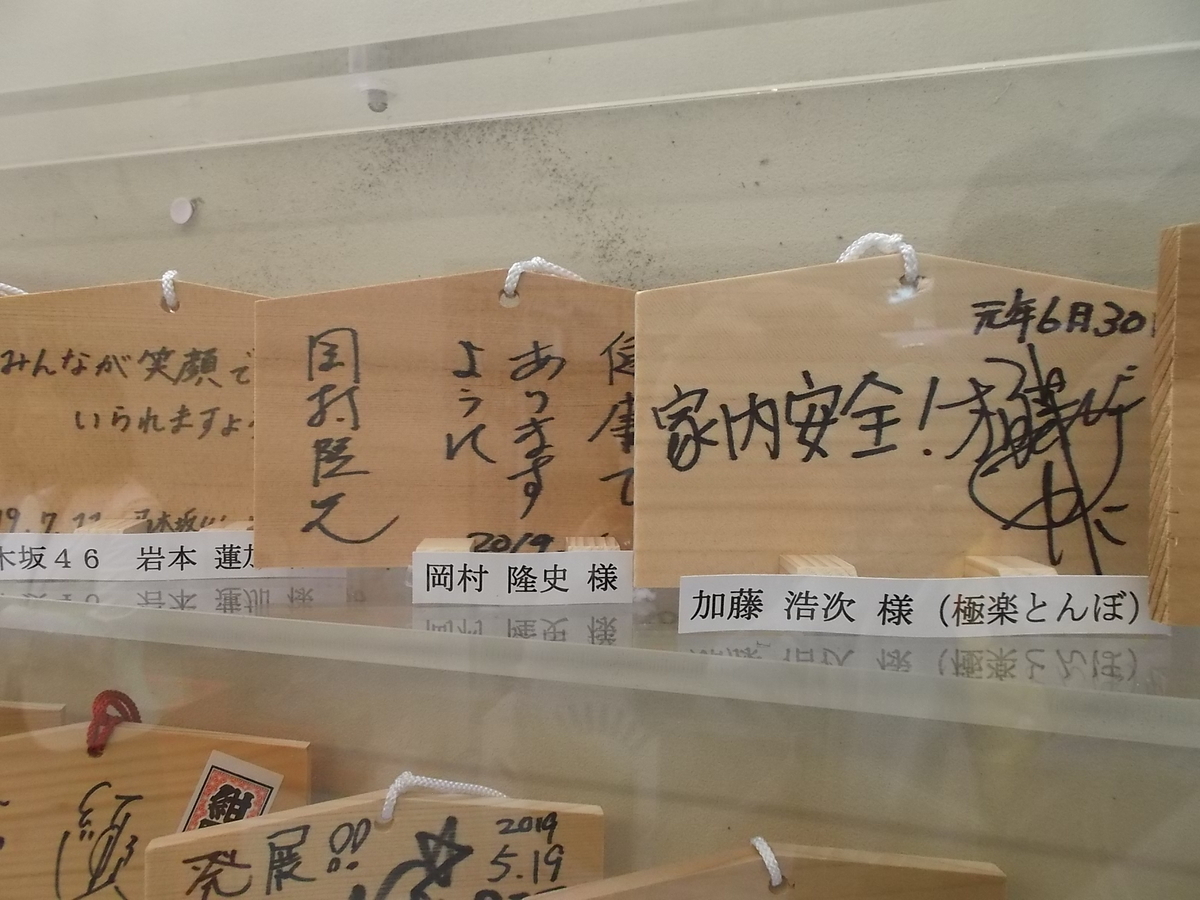 みんなが笑顔で
いられますよ
19.7.
木坂４６ 岩本 蓮加
健康で
あります
ように
岡村隆史
2019.
岡村 隆史 様
元年6月30
家内安全!
加藤 浩次 様 (極楽とんぼ)
紺
発展!!
2019
5.19